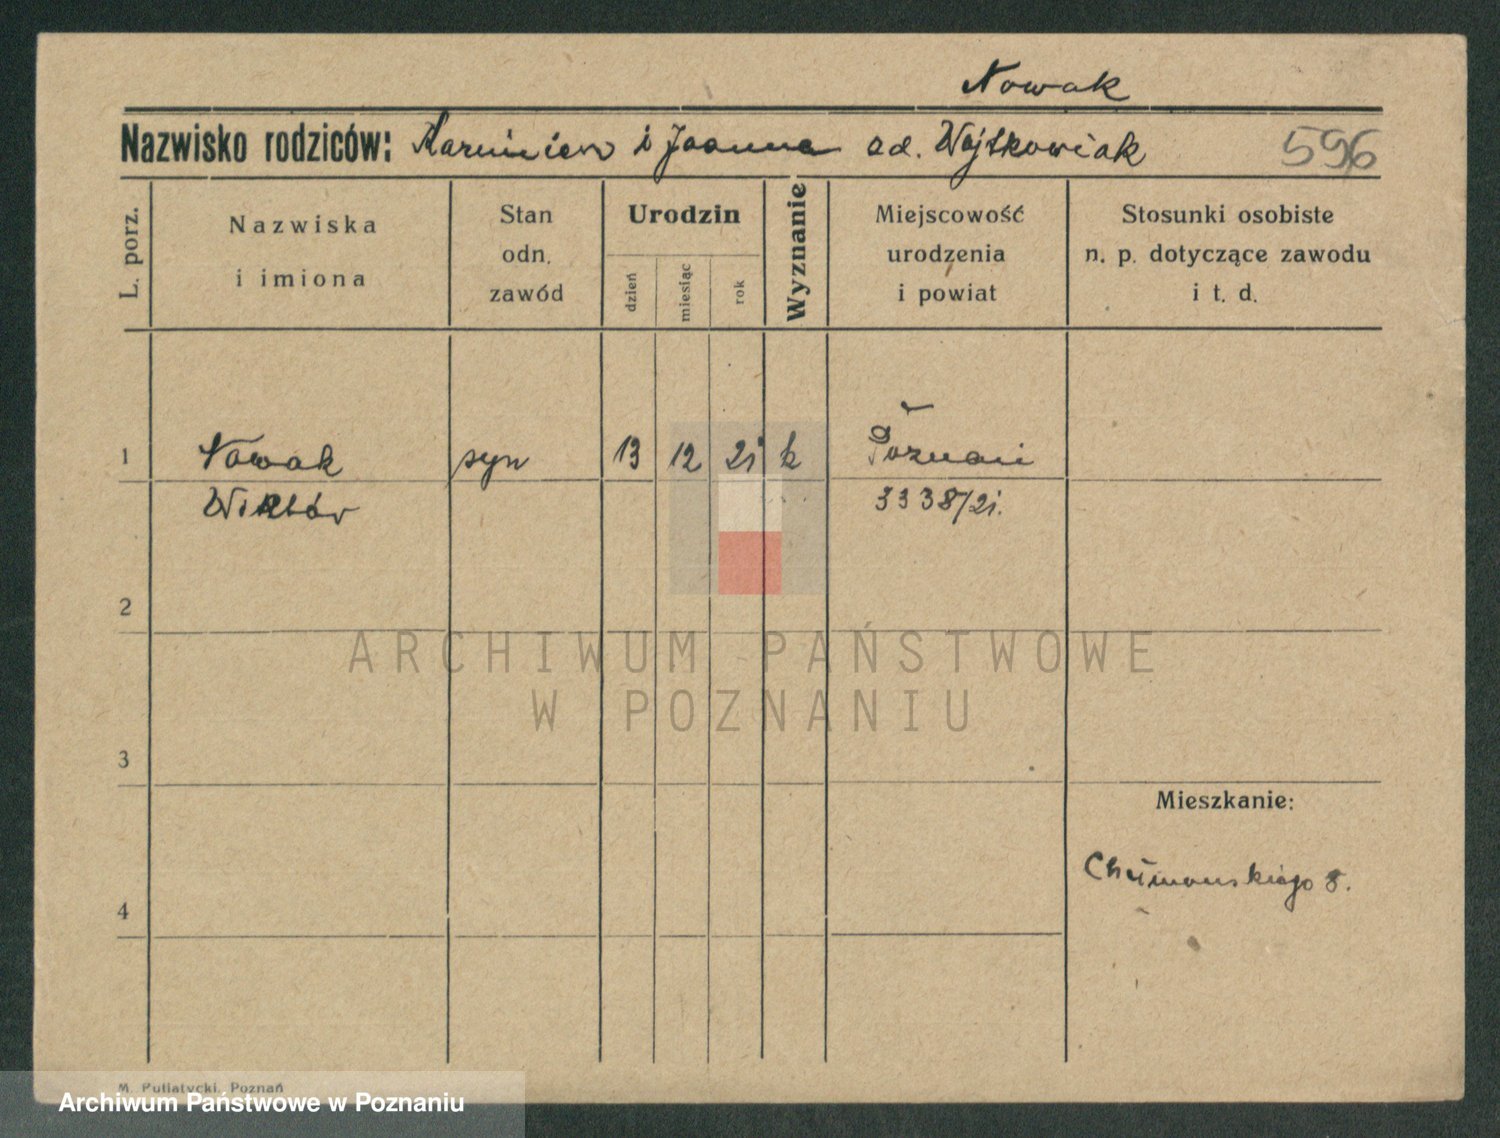 Nowak
Nazwisko rodziców: Kazimierz i Joanna od. Wojtkowiak 596
L. porz.
Nazwiska i imiona
Stan odn. zawód
Urodzin
dzień
miesiąc
rok
Wyznanie
Miejscowość urodzenia i powiat
Stosunki osobiste n. p. dotyczące zawodu i t. d.
1 Nowak syn 13 12 21 k Poznań
Wiktór 3338/21.
2
ARCHIWUM PAŃSTWOWE
W POZNANIU
3
Mieszkanie:
8.
4
M. Putiatycki, Poznań
Archiwum Państwowe w Poznaniu